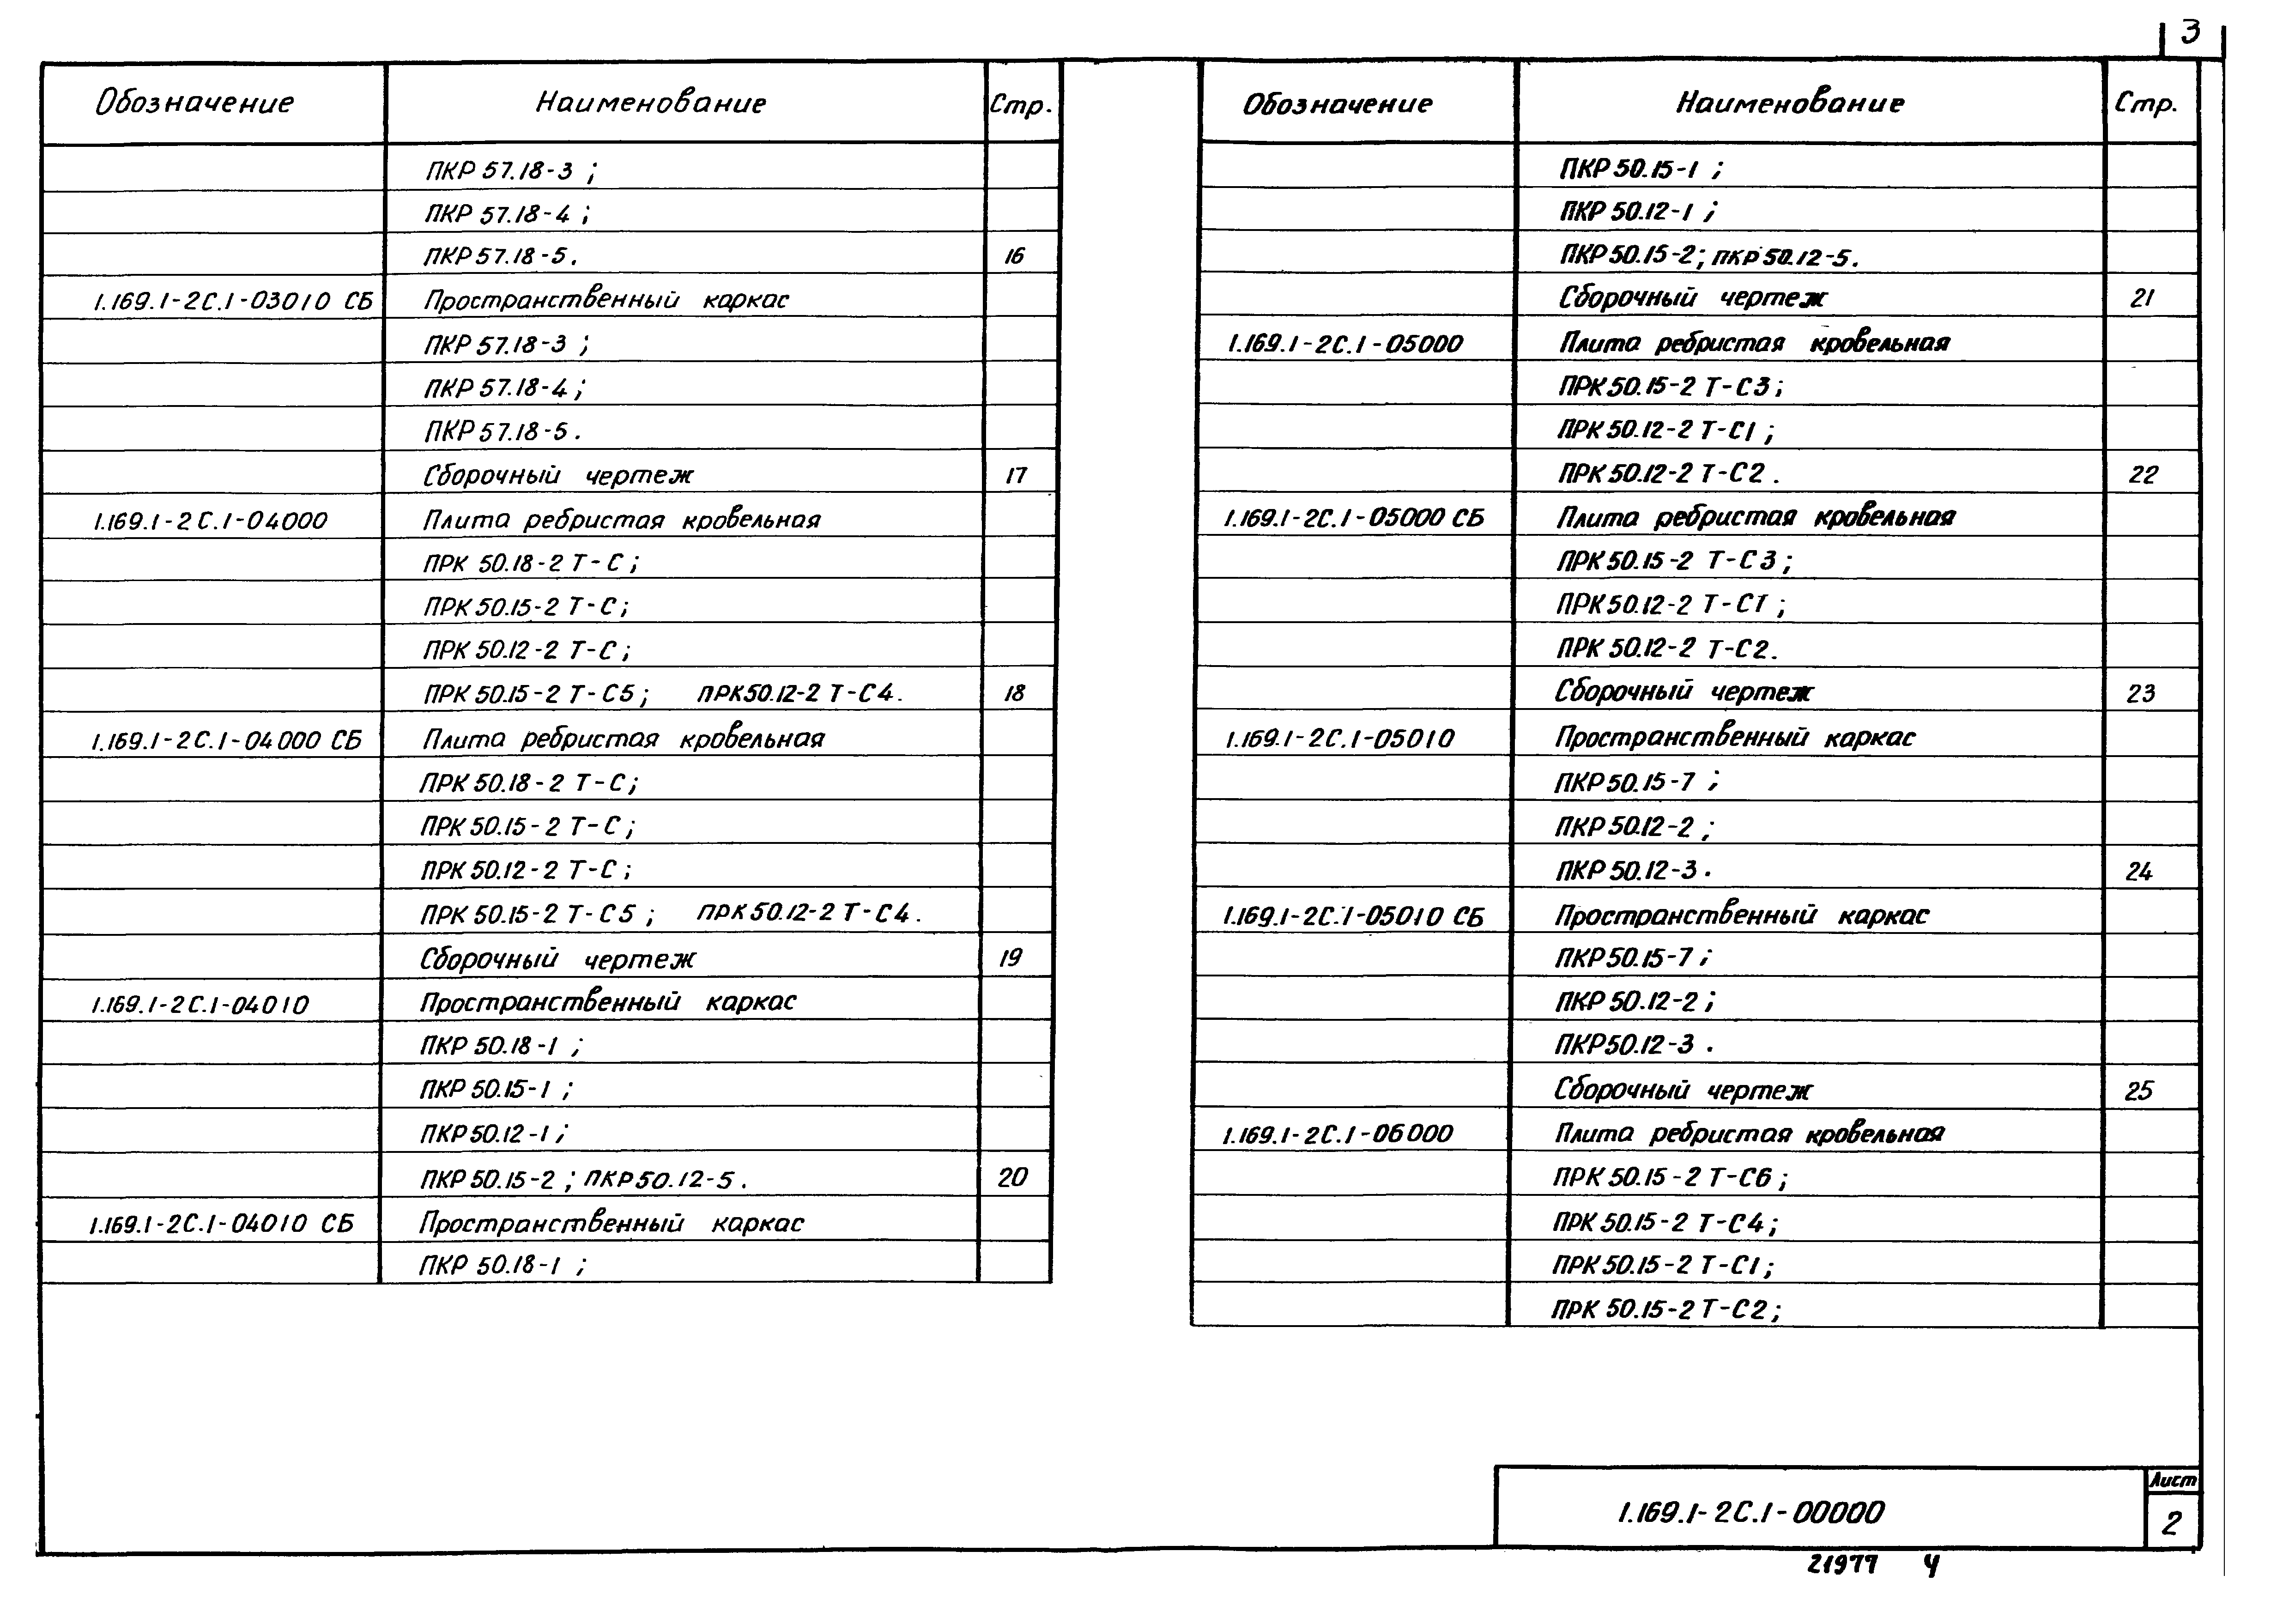 3
Обозначение Наименование Стр.
ПКР 57.18-3 ;
ПКР 57.18-4 ;
ПКР 57.18-5. 16
1.169.1-2С.1-03010 СБ Пространственный каркас
ПКР 57.18-3 ;
ПКР 57.18-4 ;
ПКР 57.18-5.
Сборочный чертеж 17
1.169.1-2С.1-04000 Плита ребристая кровельная
ПРК 50.18-2 Т-С ;
ПРК 50.15-2 Т-С ;
ПРК 50.12-2 Т-С ;
ПРК 50.15-2 Т-С5 ; ПРК 50.12-2 Т-С4. 18
1.169.1-2С.1-04000 СБ Плита ребристая кровельная
ПРК 50.18-2 Т-С ;
ПРК 50.15-2 Т-С ;
ПРК 50.12-2 Т-С ;
ПРК 50.15-2 Т-С5 ; ПРК 50.12-2 Т-С4.
Сборочный чертеж 19
1.169.1-2С.1-04010 Пространственный каркас
ПКР 50.18-1 ;
ПКР 50.15-1 ;
ПКР 50.12-1 ;
ПКР 50.15-2 ; ПКР 50.12-5. 20
1.169.1-2С.1-04010 СБ Пространственный каркас
ПКР 50.18-1 ;
Обозначение Наименование Стр.
ПКР 50.15-1 ;
ПКР 50.12-1 ;
ПКР 50.15-2 ; ПКР 50.12-5.
Сборочный чертеж 21
1.169.1-2С.1-05000 Плита ребристая кровельная
ПРК 50.15-2 Т-С3 ;
ПРК 50.12-2 Т-С1 ;
ПРК 50.12-2 Т-С2. 22
1.169.1-2С.1-05000 СБ Плита ребристая кровельная
ПРК 50.15-2 Т-С3 ;
ПРК 50.12-2 Т-С1 ;
ПРК 50.12-2 Т-С2.
Сборочный чертеж 23
1.169.1-2С.1-05010 Пространственный каркас
ПКР 50.15-7 ;
ПКР 50.12-2 ;
ПКР 50.12-3. 24
1.169.1-2С.1-05010 СБ Пространственный каркас
ПКР 50.15-7 ;
ПКР 50.12-2 ;
ПКР 50.12-3.
Сборочный чертеж 25
1.169.1-2С.1-06000 Плита ребристая кровельная
ПРК 50.15-2 Т-С6 ;
ПРК 50.15-2 Т-С4 ;
ПРК 50.15-2 Т-С1 ;
ПРК 50.15-2 Т-С2 ;
1.169.1-2С.1-00000 Лист
2
21977 4